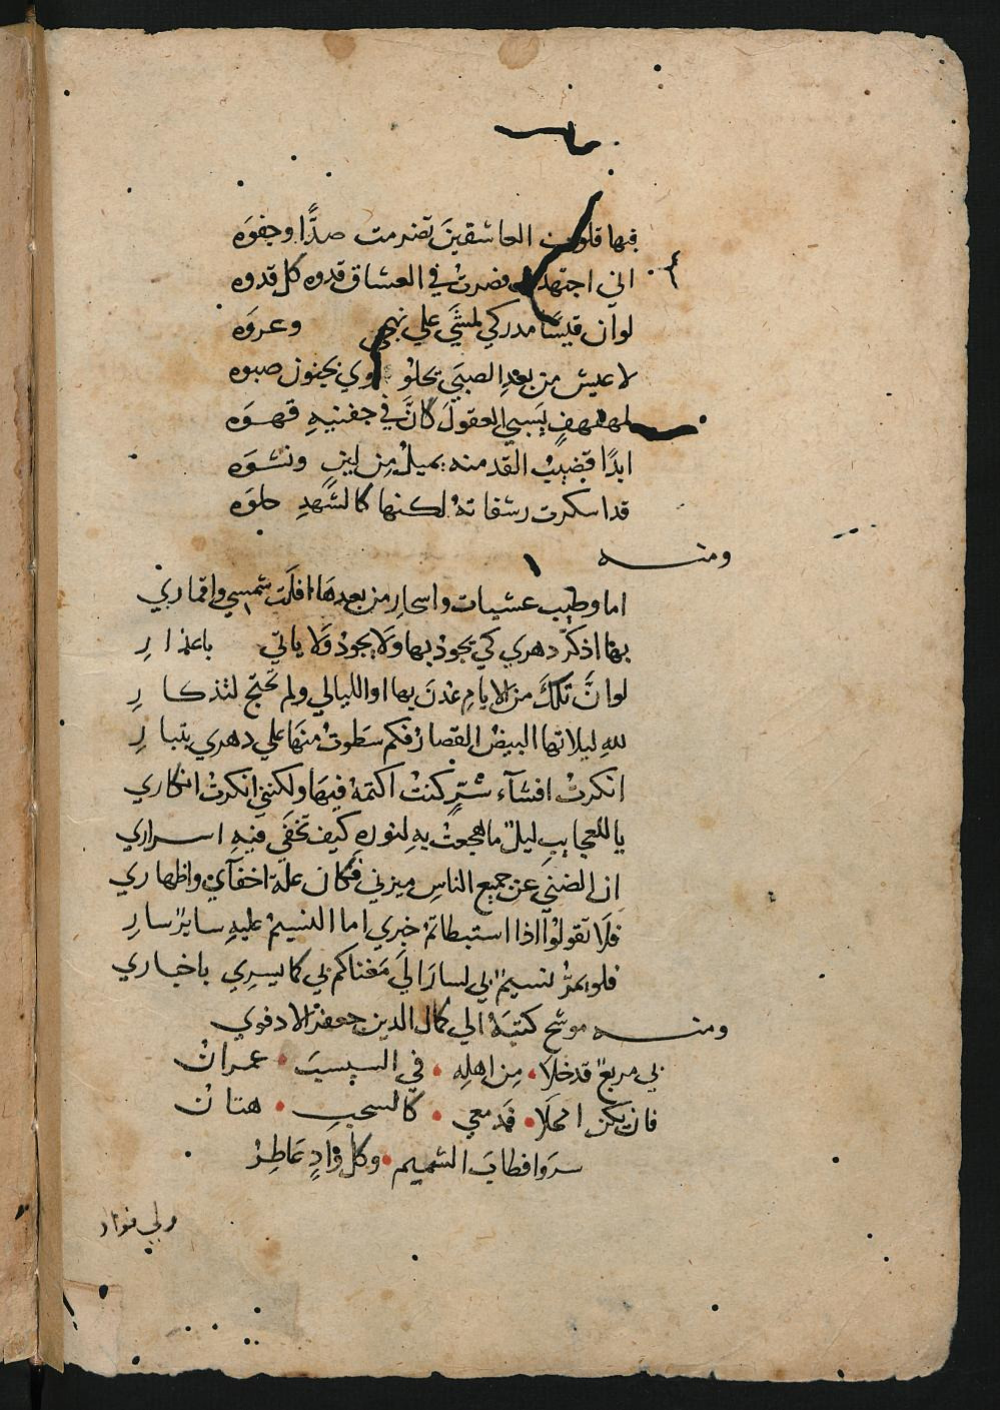 فيها قلوب العاشقين تضرمت صدًّا وجفوَه
اني اجتهدت فصرتُ في العشاق قدوه كل قدوه
لو ان قيسًا مدركي لمشَي علي نهجي وعروَه
لا عيش من بعدِ الصبَي يحلوُ وي بجنون صبوه
لمهفهفٍ يَسبي العقولَ كانَّ في جفنيهِ قهوَه
ابدًا قضيبُ القد منه يميلُ مِن لينٍ ونشوَه
قد اسكرت رشفاتهُ لكنها كالشَّهدِ حلوَه
ومنه
اما وطيب عشيات واسحارِ من بعدهَا افلَت شمسي واقماري
بها اذكّر دهري كي يجودَ بها ولا يجودُ ولا ياتي باعذارِ
لو انَّ تلكَ من الايامِ عدنَ بها او الليالي ولم تحتج لتذكارِ
للهِ ليلاتها البيضُ القصارُ فكم سَطوتُ منهَا علي دهري بتبارِ
انكرتُ افشآء سِرٍّ كنتُ اكتمهُ فيهَا ولكنني انكرتُ انكاري
يا للعجايبِ ليلٌ ما هجعتُ بهِ لنورهِ كيف تخفَي فيهِ اسراري
ان الضني عن جميع الناسِ ميزني فكان علة اخفآئي واظهاري
فلَا تقولوُا اذا استبطاتمُ خبري اما النسيمُ عليهِ سايرٌ سارِ
فلو يمرُّ نسيمٌ بي لسارَ الَي مَغناكم بي كما يسرِي باخباري
ومنه موشح كتبَهُ الي كمال الدين جعفرٍ الادفوي
بي مربعٌ قد خلا • مِن اهلِه • في السبسبَ • عمرانُ
فان يكن امحلَا • فَدمعي • كالسحبِ • هتانُ
سرَوا فطابَ الشميم • وكل وادٍ عَاطِرُ
ولي فواد